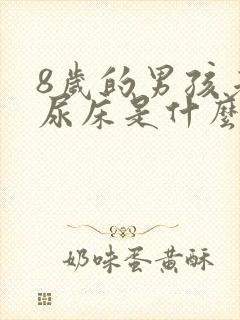 8歲的男孩
尿床是什麼
奶味蛋黃酥